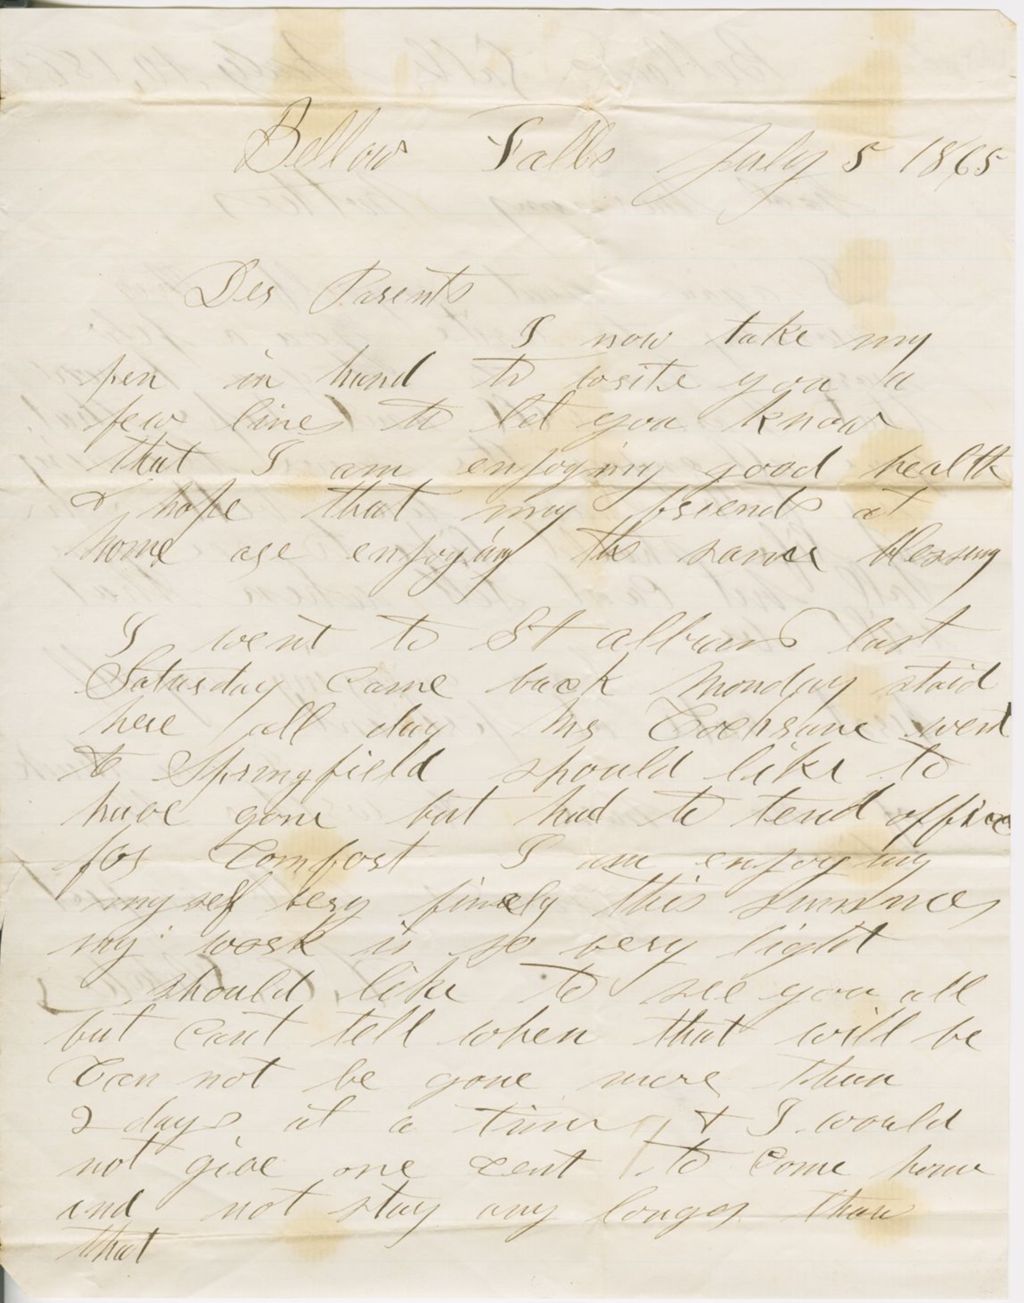 Bellow Falls July 5 1865
Der Parents
I now take my
pen in hand to write you a
few lines to let you know
that I am enjoying good health
& hope that my friends at
home are enjoying the same blessing
I went to St albans last
Saturday came back Monday staid
here all day Mr Cochrane went
to Springfield should like to
have gone but had to tend office
for Comfort I am enjoying
myself very finely this summer
my work is so very light
should like to see you all
but cant tell when that will be
Can not be gone more than
2 days at a time & I would
not give one cent to come home
and not stay any longer than
that